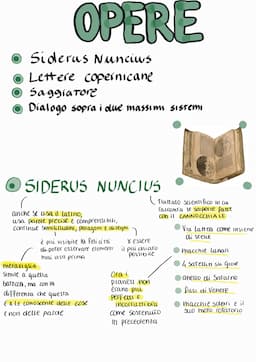 OPERE
Siderus Nuncius
Lettere copernicane
Saggiatore
Dialogo sopra i due massimi sistemi
SIDERUS NUNCIUS
anche se usa il latino,
usa parole precise e comprensibili,
continue similitudini, paragoni e dialoghi
è più visibile la felicità
di poter osservare elementi
mai visti prima
x essere
il più chiaro
possibile
meraviglia
simile a quella
barocca, ma con la
differenza che questa
è x le conoscenze delle cose
e non delle parole
Ora i
pianeti non
erano più
perfetti e
incorruttibili
come sostenuto
in precedenza
trattato scientifico in cui
racconta le scoperte fatte
con il CANNOCCHIALE
Via Lattea come insieme
di stelle
macchie lunari
4 satelliti su giove
anello di Saturno
fasi di Venere
macchie solari e il
suo moto rotatorio